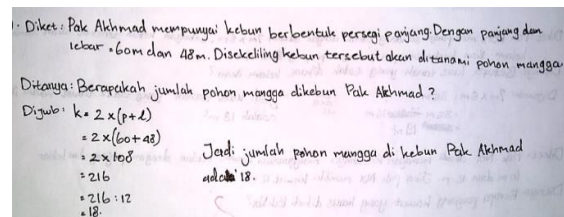 . Diket : Pak Akhmad mempunyai kebun berbentuk persegi panjang. Dengan panjang dan
lebar = 60m dan 48m. Disekeliling kebun tersebut akan ditanami pohon mangga.
Ditanya : Berapakah jumlah pohon mangga dikebun Pak Akhmad ?
Dijwb : k = 2 x (p+l)
= 2 x (60+48)
= 2 x 108
= 216
= 216 : 12
= 18.
Jadi jumlah pohon mangga di kebun Pak Akhmad
adalah 18.